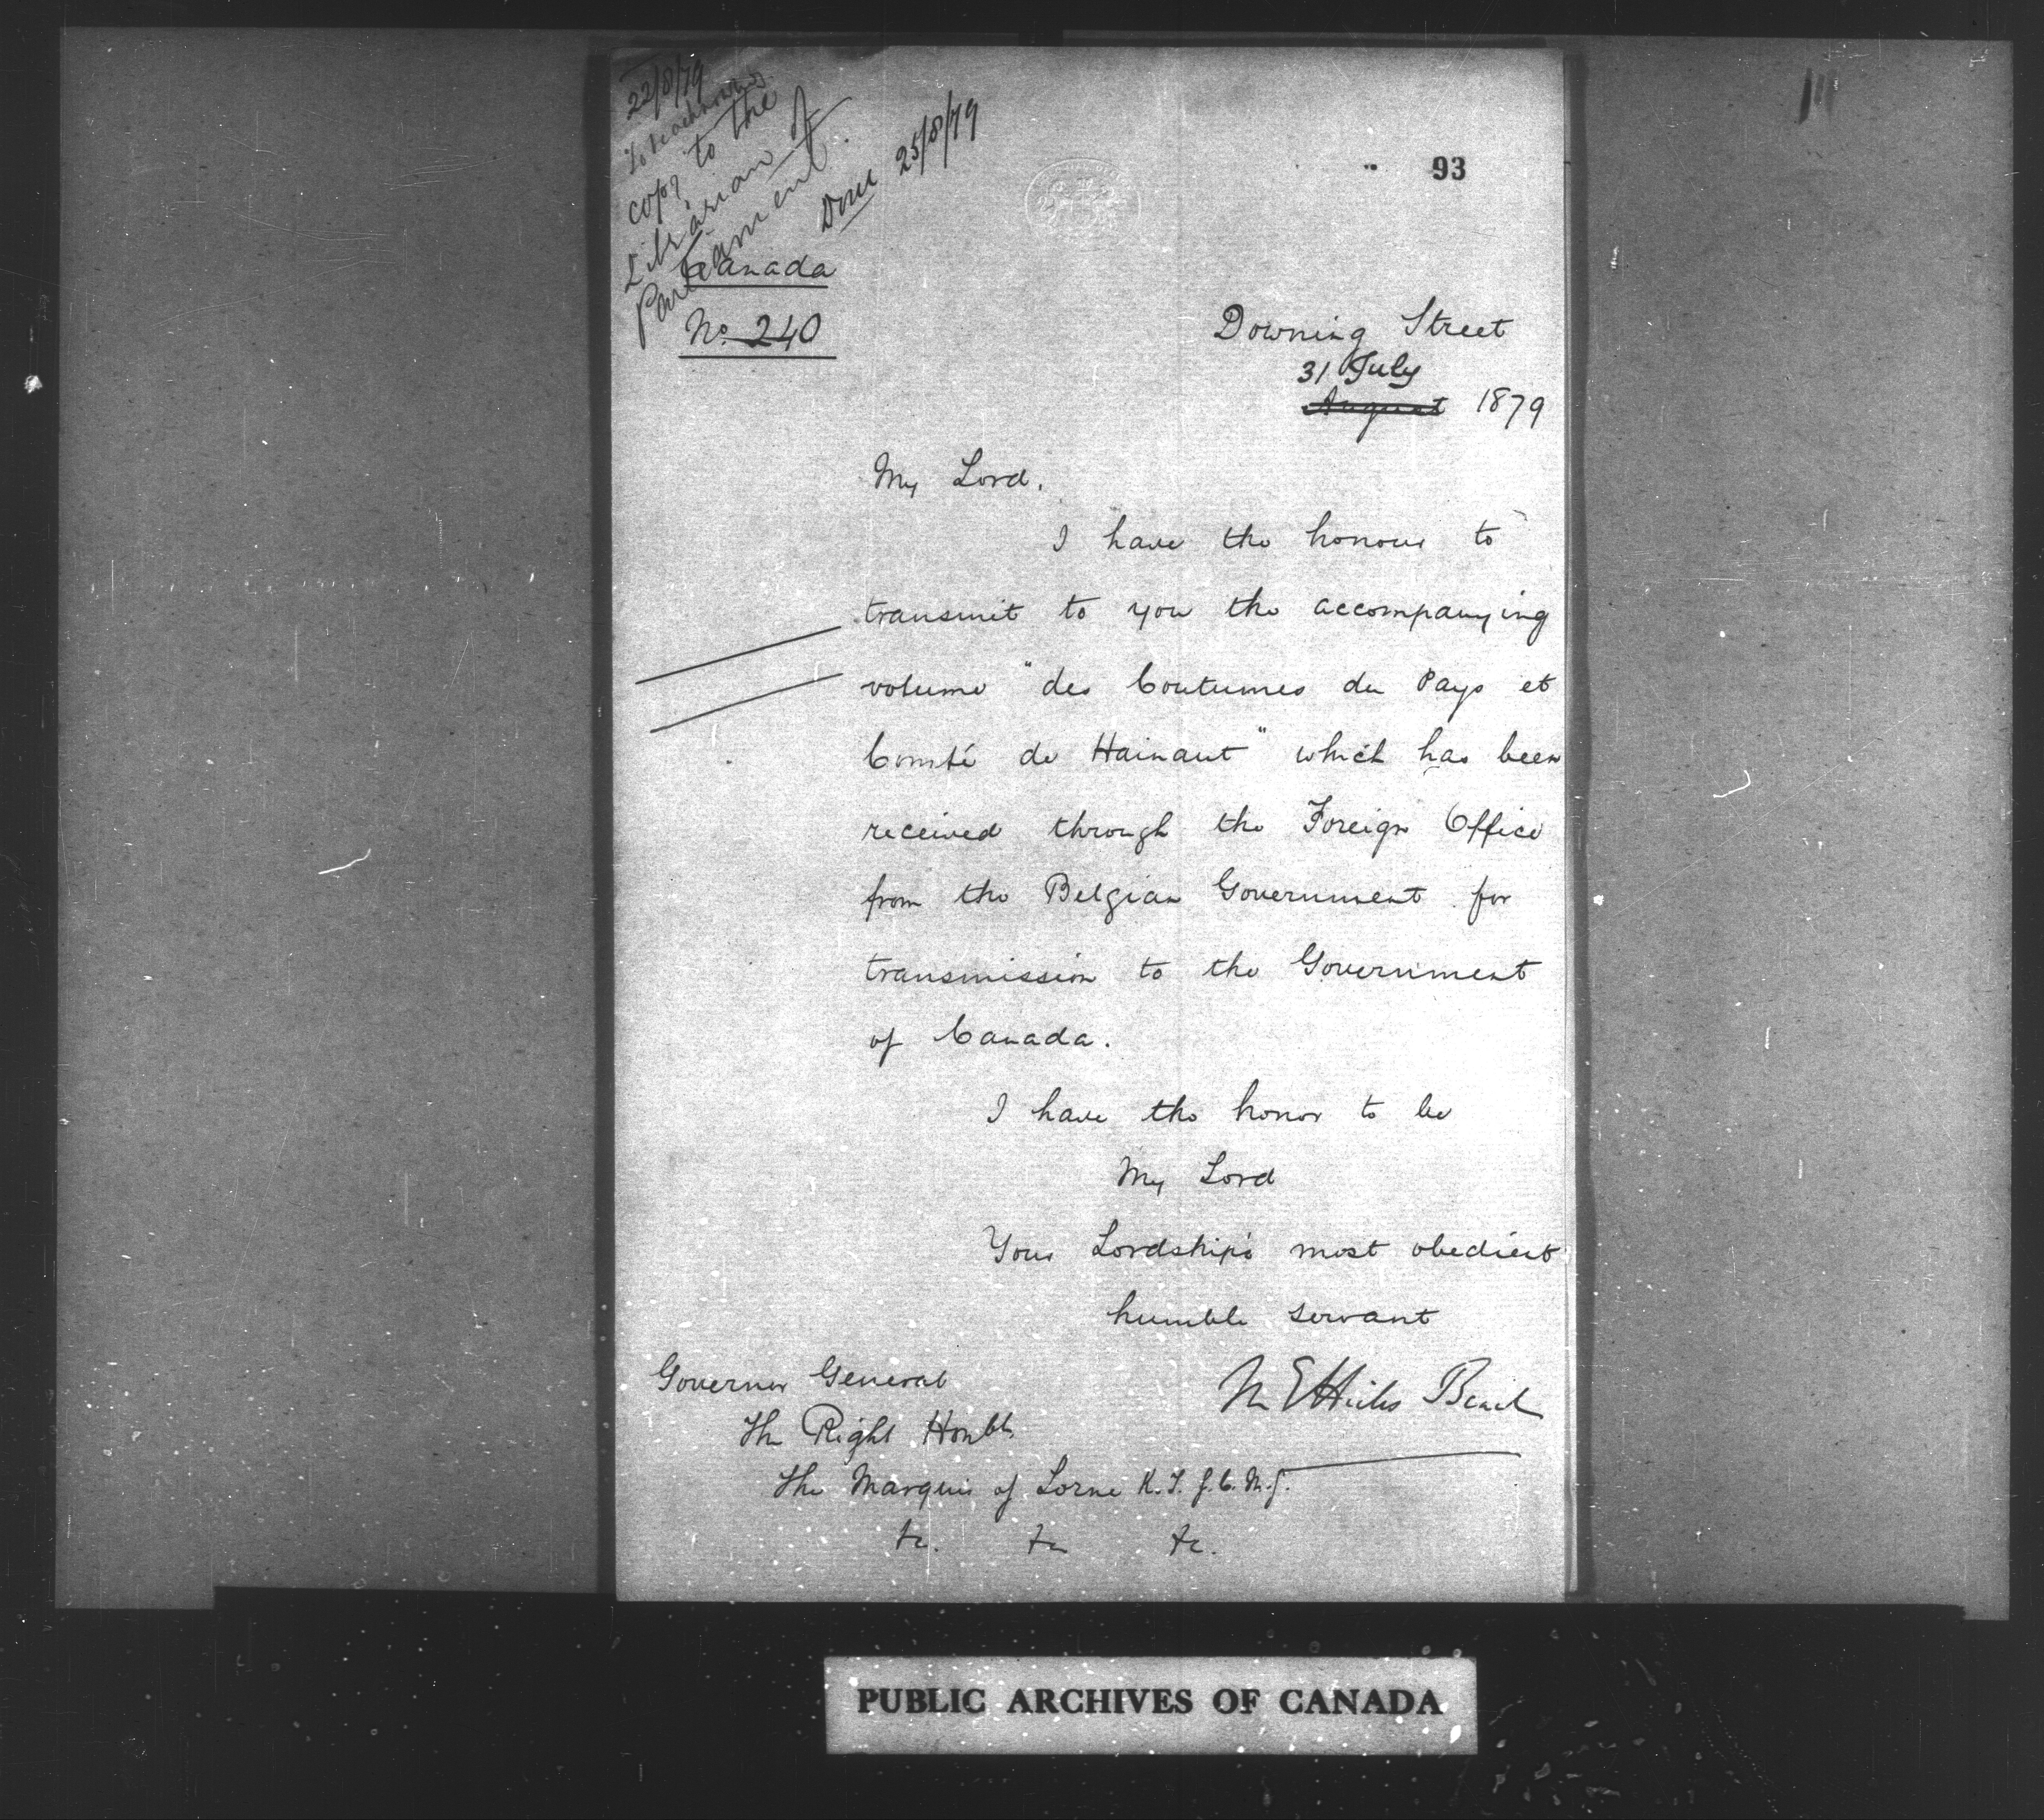 22/8/79
To be acknowd
copy to the
Librarian of
Parliament.
Done 25/8/79
93
Canada
No. 240
Downing Street
31 July
August 1879
My Lord.
I have the honour to
transmit to you the accompanying
volume "des Coutumes du Pays et
Comté de Hainaut" which has been
received through the Foreign Office
from the Belgian Government for
transmission to the Government
of Canada.
I have the honor to be
My Lord
Your Lordship's most obedient
humble servant
M E Hicks Beach
Governor General
The Right Honble
The Marquis of Lorne K.T. G.C.M.G.
&c. &c &c.
PUBLIC ARCHIVES OF CANADA